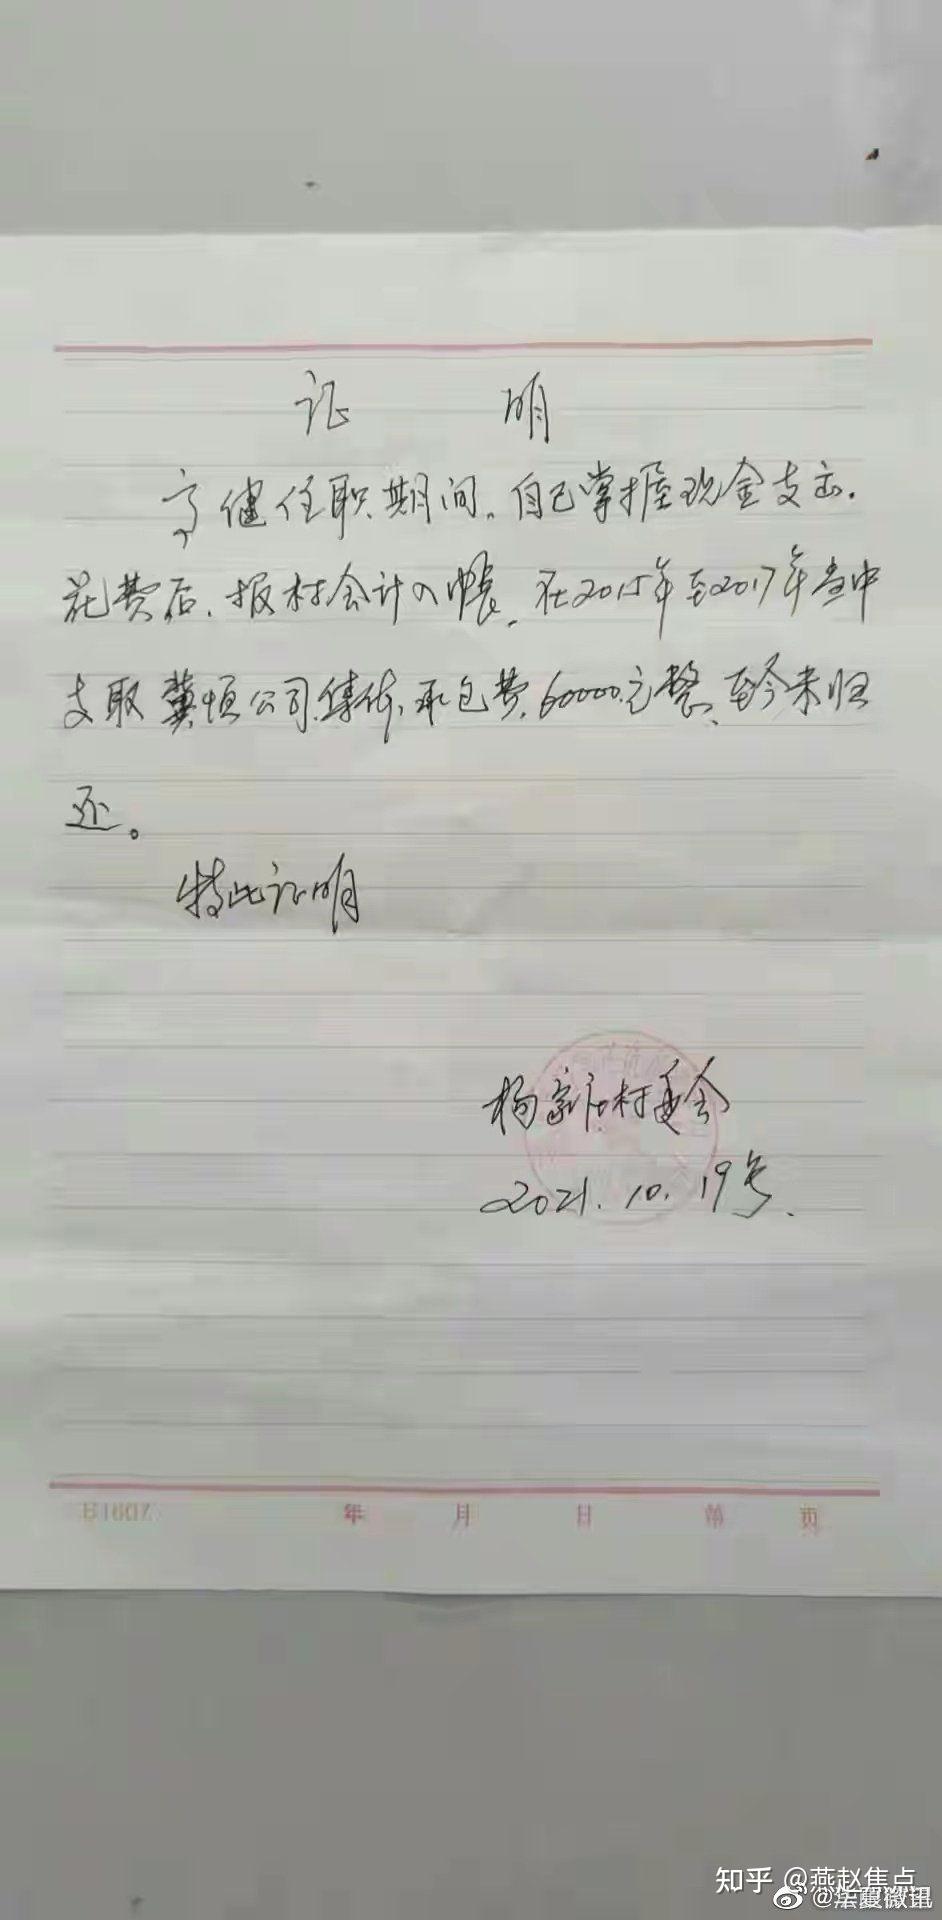 证 明
高健任职期间。自己掌握现金支出.
花费后.报村会计入帐.在2015年至2017年当中
支取冀恒公司集体承包费60000.元整、至今未归
还。
特此证明
杨家庄村委会
2021.10.19号.
B1607 年 月 日 第 页
知乎 @燕赵焦点
@法夏微讯